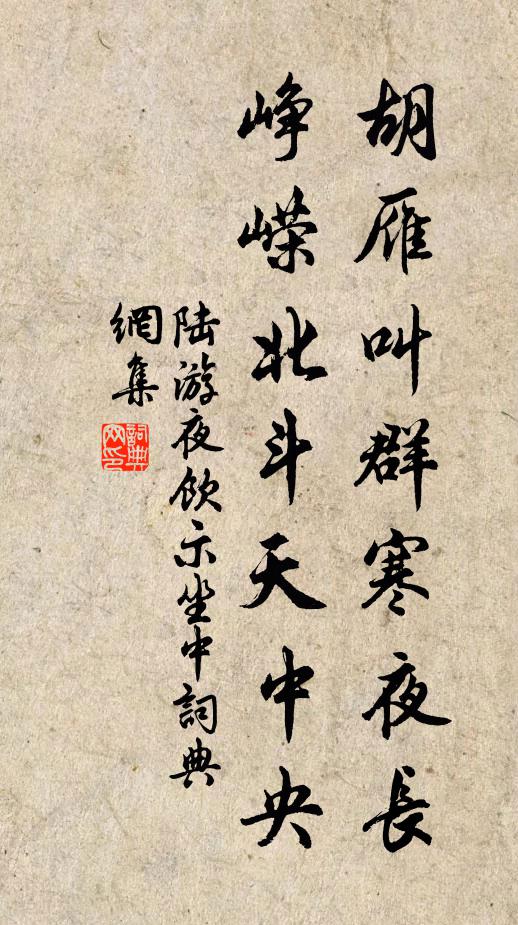 胡雁叫群寒夜長
峥嶸北斗天中央
陆游夜飲示坐中詞典
網集
詞典
网印